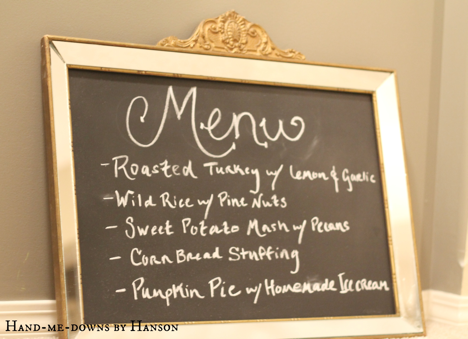 Menu
- Roasted Turkey w/ Lemon & Garlic
- Wild Rice w/ Pine Nuts
- Sweet Potato Mash w/ Pecans
- Corn Bread Stuffing
- Pumpkin Pie w/ Homemade Ice cream
Hand-me-downs by Hanson